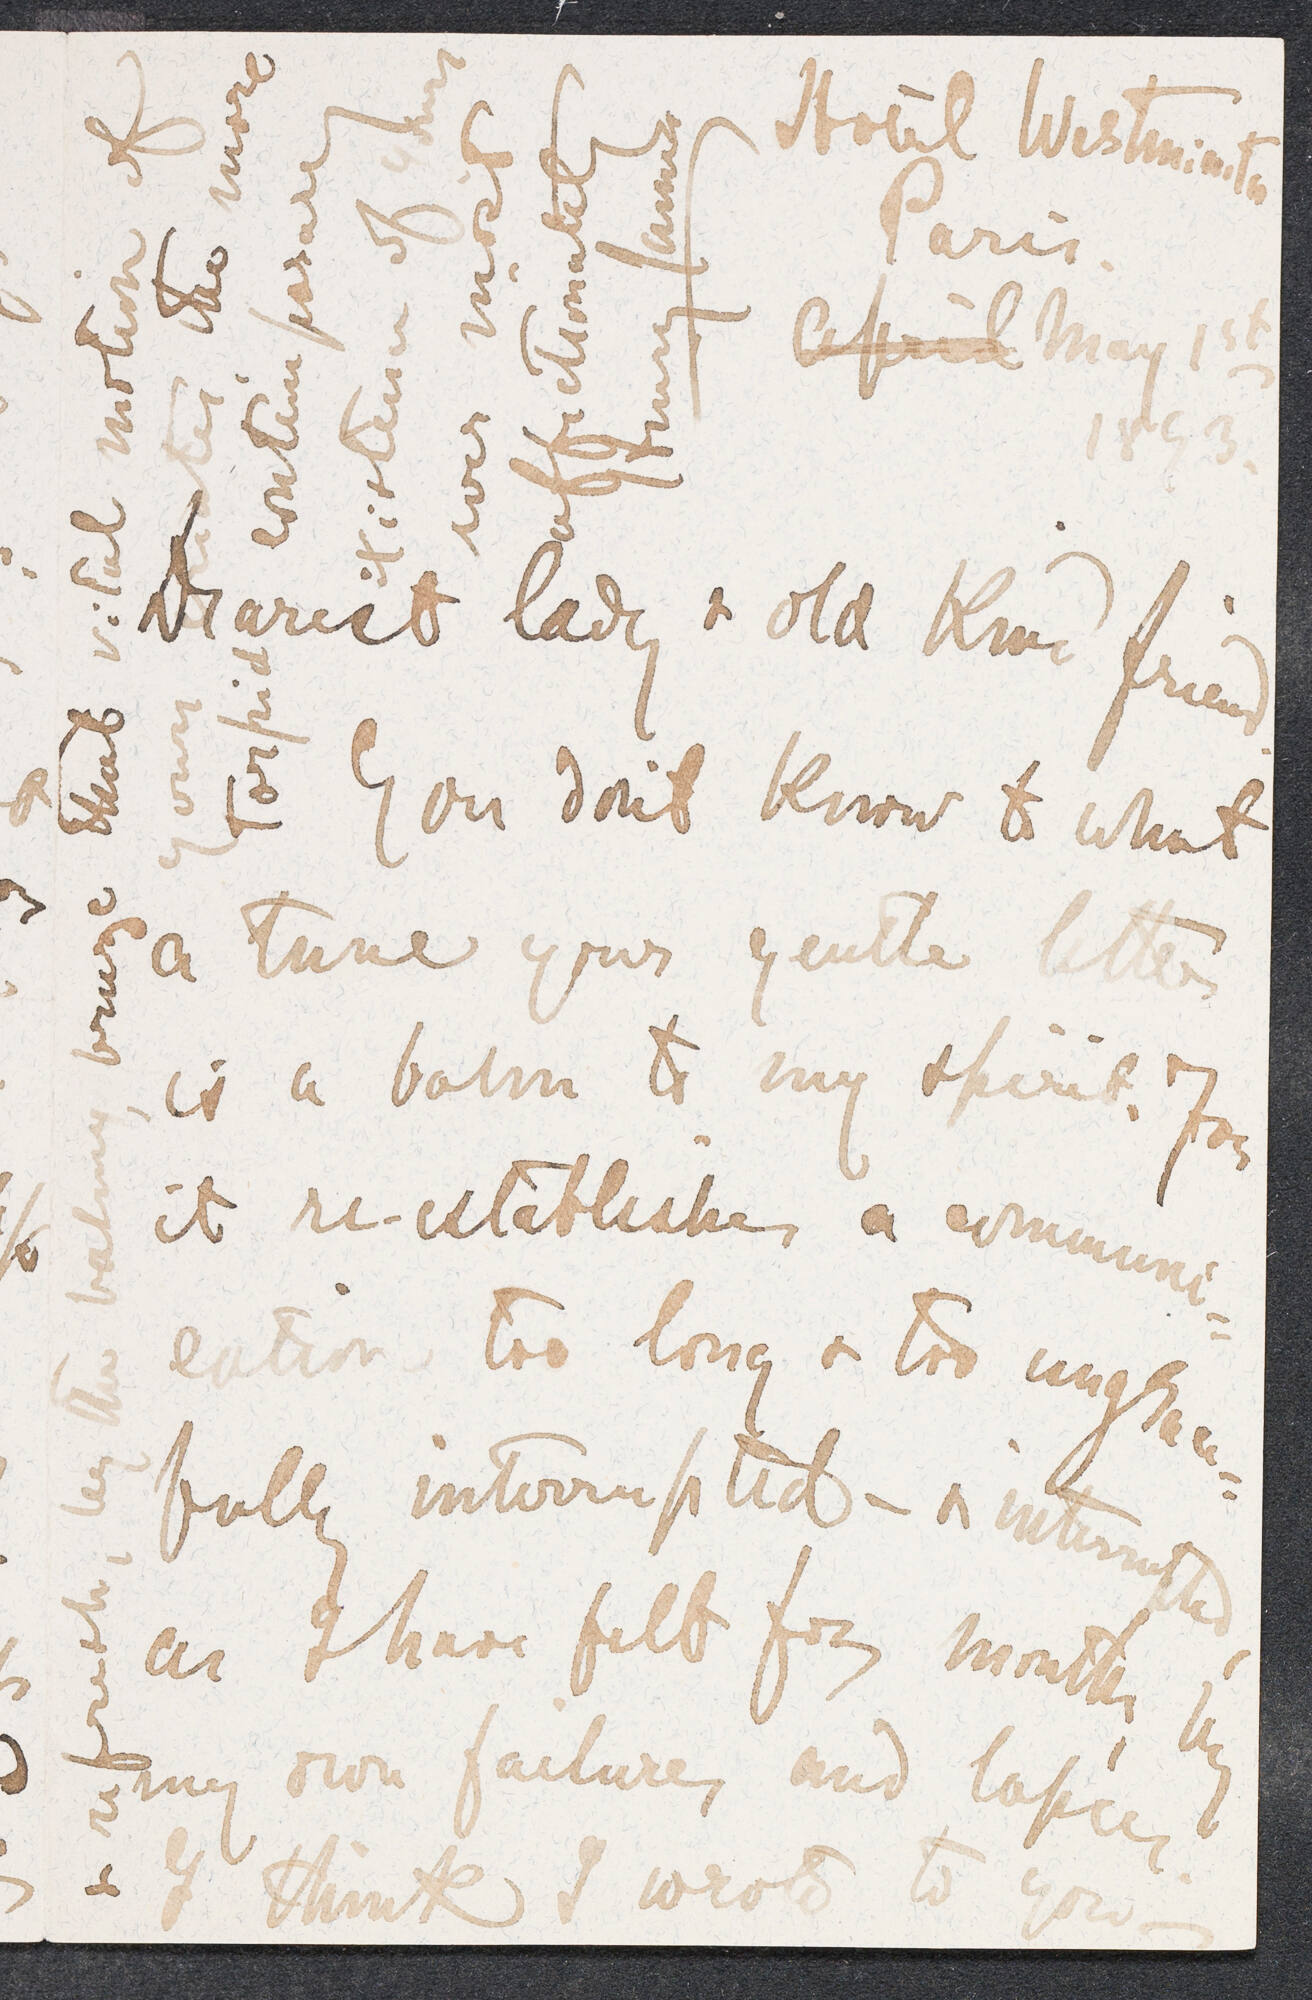 Hotel Westminster
Paris.
April May 1st
1893.
Dearest lady & old kind friend
You don't know to what
a tune your gentle letter
is a balm to my spirit. For
it re-establishes a communi-
cation too long & too ungrace-
fully interrupted — & interrupted,
as I have felt for months, by
my own failures and lapses.
I think I wrote to you —
& refresh, by the balmy breeze that vital motion of
yours the more
torpid contemporary
existence of your
ever most
affectionately
Henry James